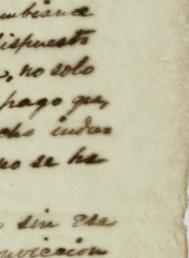 mbiance
dispuesto
o, no solo
pago que,
cho indu=
no se ha
sin esa
nviccion